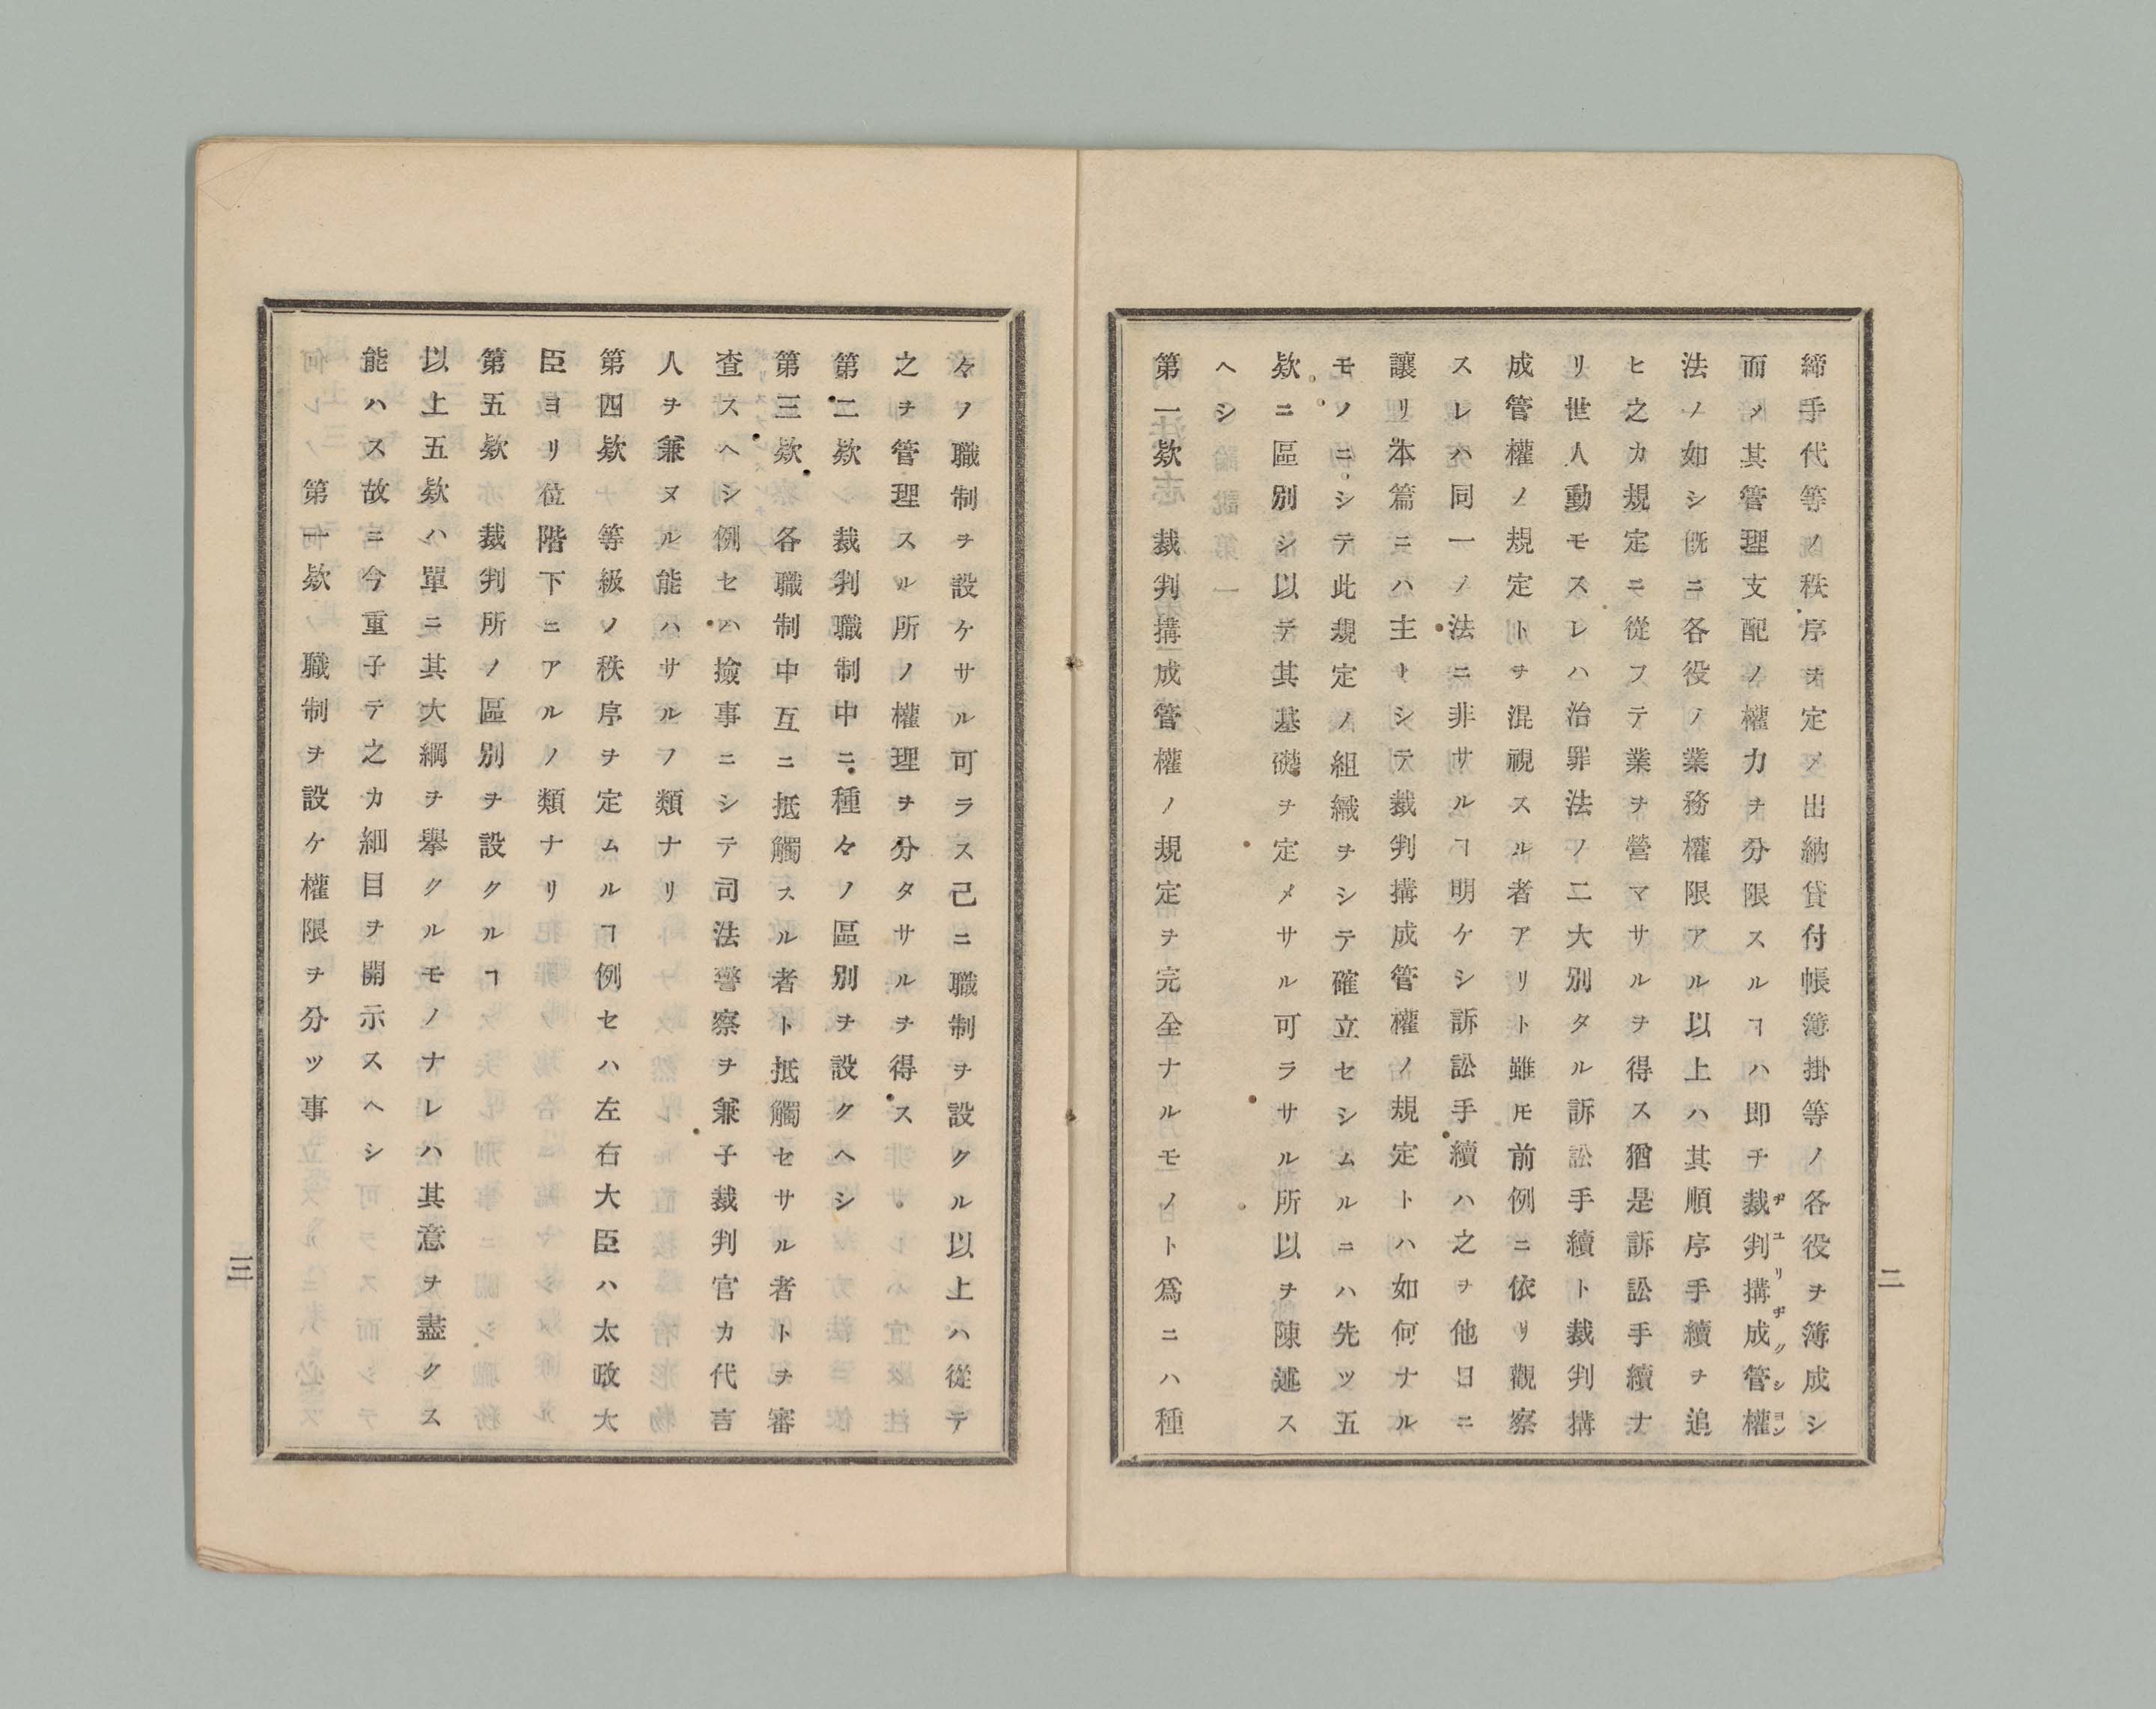 締手代等ノ秩序ヲ定メ出納貸付帳簿掛等ノ各役ヲ簿成シ
而メ其管理支配ノ權力ヲ分限スルヿハ即チ裁判搆成管權
ヂユリヂクシヨン
法ノ如シ既ニ各役ノ業務權限アル以上ハ其順序手續ヲ追
ヒ之カ規定ニ從フテ業ヲ營マサルヲ得ス猶是訴訟手續ナ
リ世人動モスレハ治罪法ノ二大別タル訴訟手續ト裁判搆
成管權ノ規定トヲ混視スル者アリト雖𪜈前例ニ依リ觀察
スレハ同一ノ法ニ非サルヿ明ケシ訴訟手續ハ之ヲ他日ニ
讓リ本篇ニハ主トシテ裁判搆成管權ノ規定トハ如何ナル
モノニシテ此規定ノ組織ヲシテ確立セシムルニハ先ツ五
欵ニ區別シ以テ其基礎ヲ定メサル可ラサル所以ヲ陳述ス
ヘシ
第一欵 裁判搆成管權ノ規定ヲ完全ナルモノト爲ニハ種
二
々ノ職制ヲ設ケサル可ラス己ニ職制ヲ設クル以上ハ從テ
之ヲ管理スル所ノ權理ヲ分タサルヲ得ス
第二欵 裁判職制中ニ種々ノ區別ヲ設クヘシ
第三欵 各職制中互ニ抵觸スル者ト抵觸セサル者トヲ審
査スヘシ例セハ撿事ニシテ司法警察ヲ兼子裁判官カ代言
人ヲ兼ヌル能ハサルノ類ナリ
第四欵 等級ノ秩序ヲ定ムルヿ例セハ左右大臣ハ太政大
臣ヨリ位階下ニアルノ類ナリ
第五欵 裁判所ノ區別ヲ設クルヿ
以上五欵ハ單ニ其大綱ヲ擧クルモノナレハ其意ヲ盡クス
能ハス故ニ今重子テ之カ細目ヲ開示スヘシ
第一欵 職制ヲ設ケ權限ヲ分ツ事
三